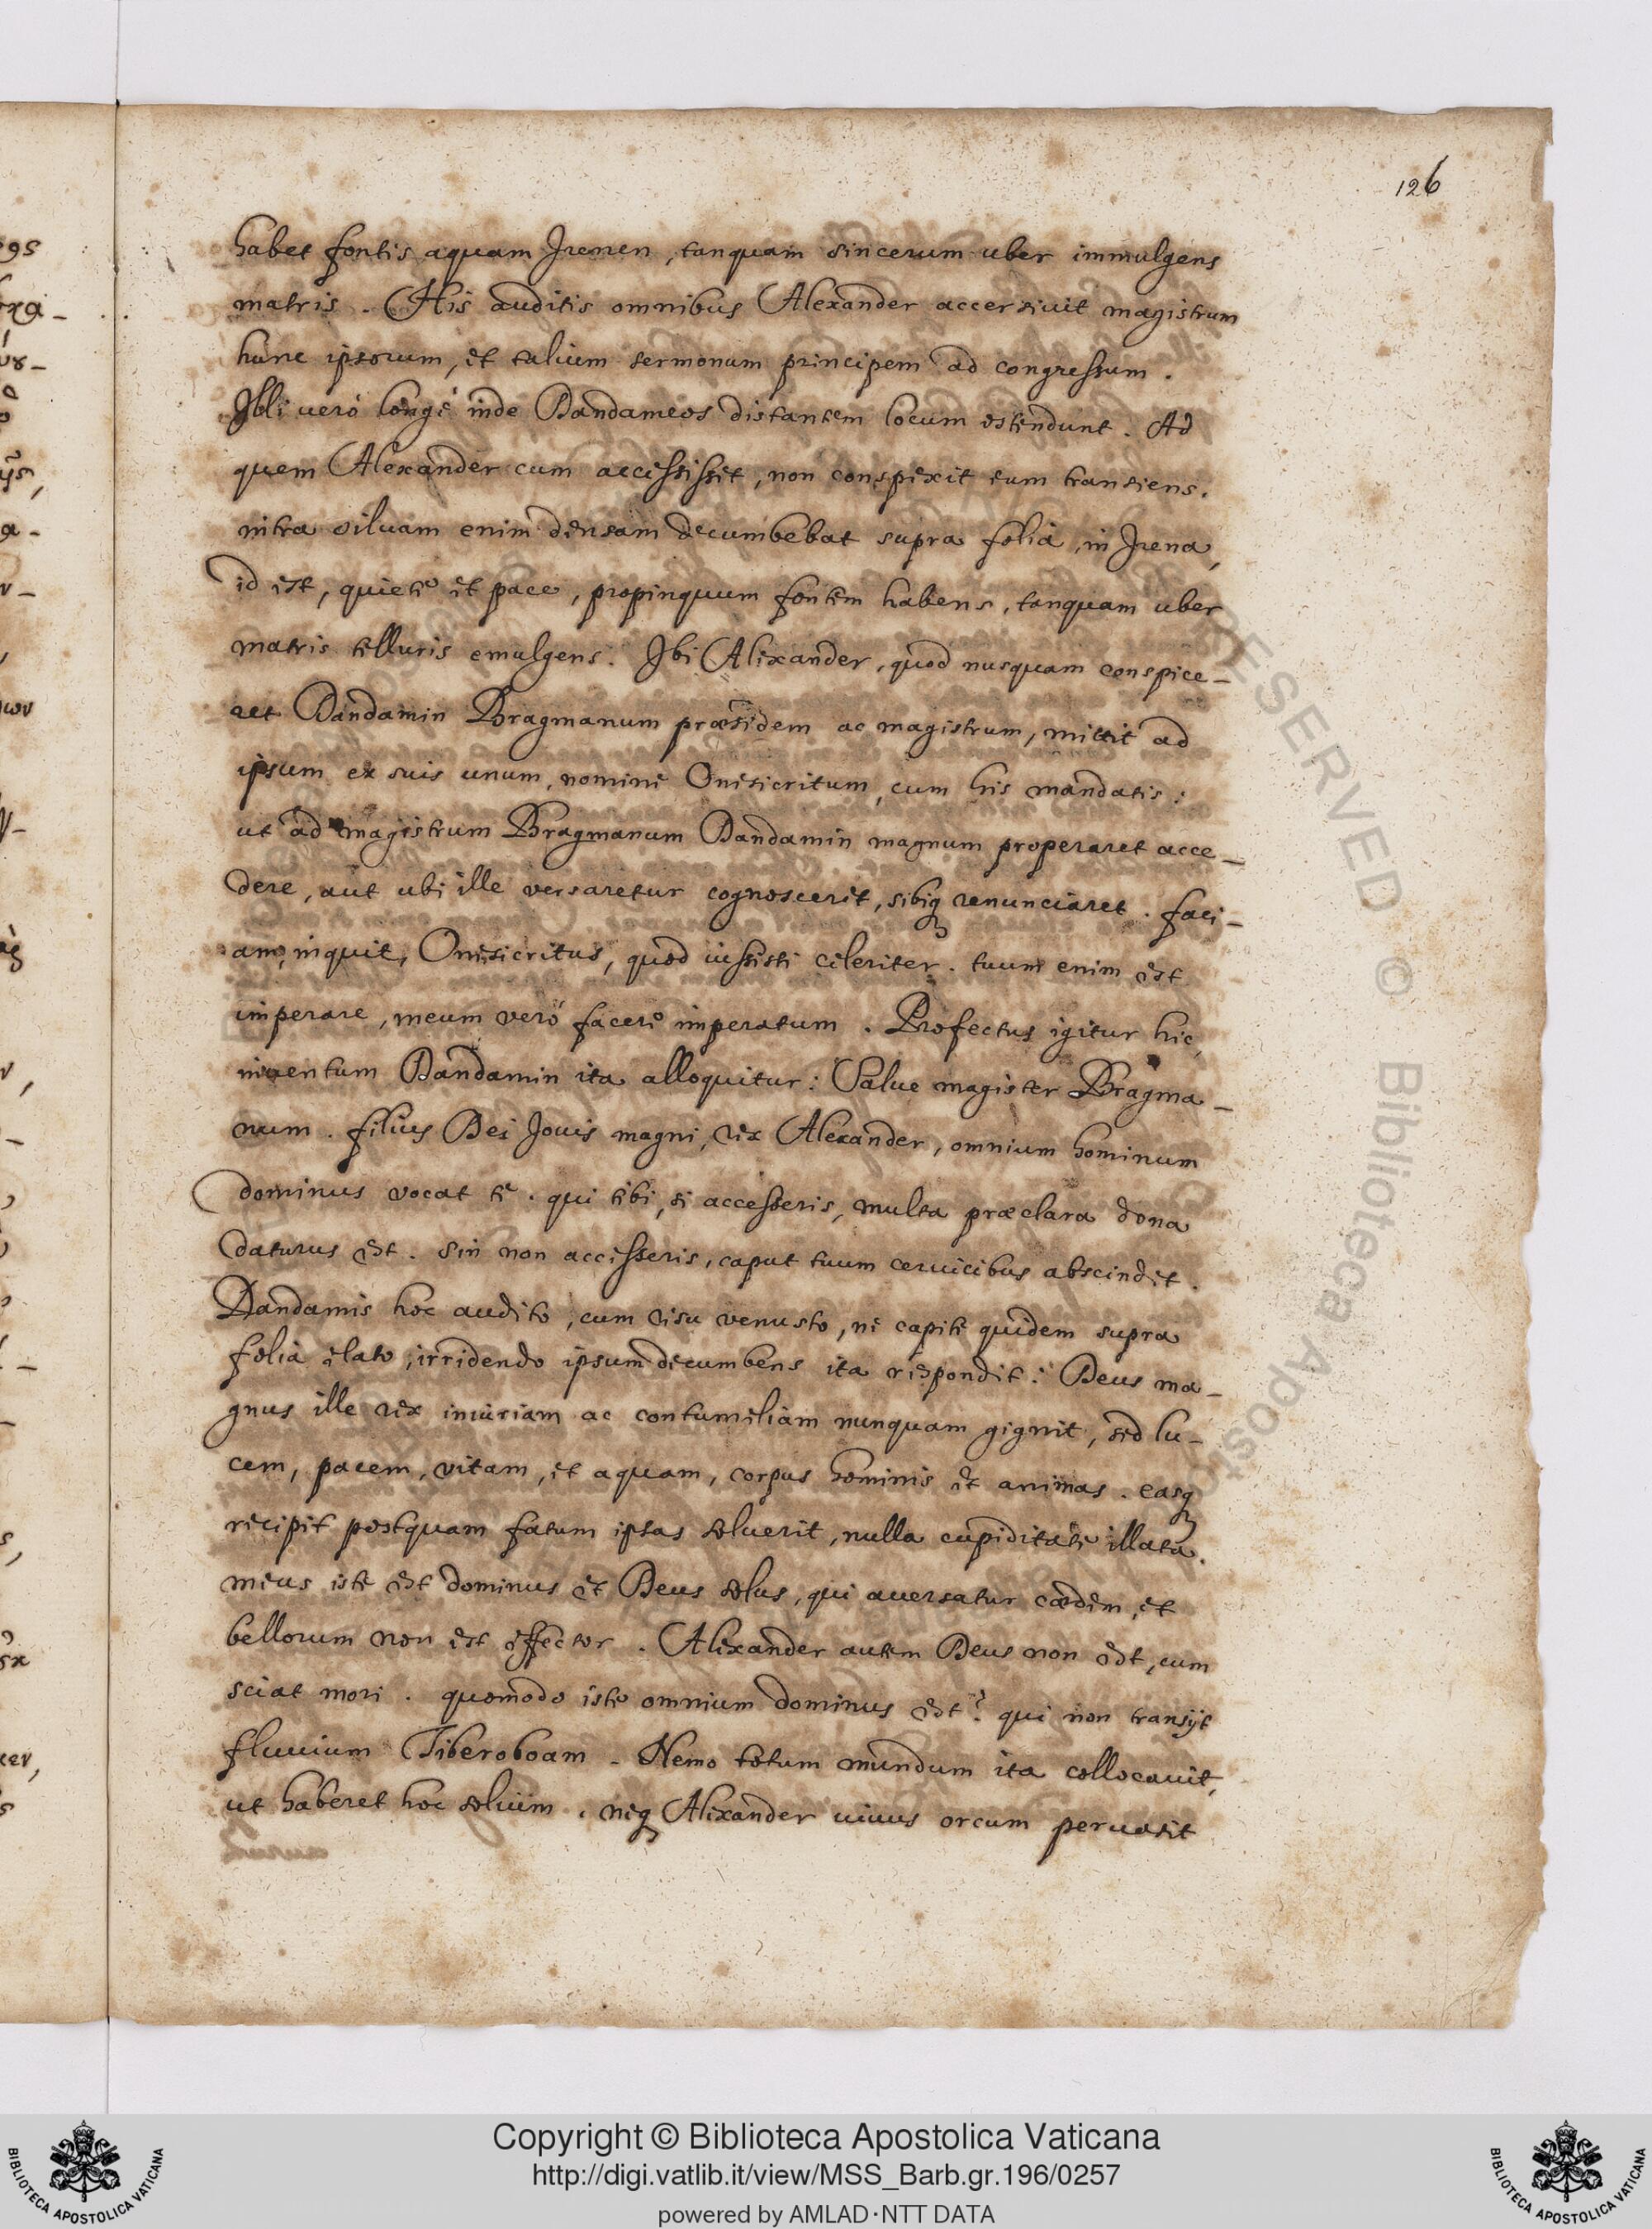 126
habet fontis aquam Irenen, tanquam sincerum uber immulgens
matris. His auditis omnibus Alexander accersiuit magistrum
hunc ipsorum, et talium sermonum principem ad congressum.
Illi verò longè inde Dandameos distantem locum ostendunt. Ad
quem Alexander cum accessisset, non conspexit eum transiens.
intra siluam enim densam decumbebat supra folia, in Irena,
id est, quiete et pace, propinquum fontem habens, tanquam uber
matris telluris emulgens. Ibi Alexander, quod nusquam conspice-
ret Dandamin Bragmanum præsidem ac magistrum, mittit ad
ipsum ex suis unum, nomine Onesicritum, cum his mandatis:
ut ad magistrum Bragmanum Dandamin magnum properaret acce-
dere, aut ubi ille versaretur cognosceret, sibiq renunciaret. faci-
am, inquit, Onesicritus, quod iussisti celeriter. tuum enim est
imperare, meum verò facere imperatum. Profectus igitur hic,
inventum Dandamin ita alloquitur: Salue magister Bragma-
num. filius Dei Jouis magni, rex Alexander, omnium hominum
dominus vocat te. qui tibi, si accesseris, multa præclara dona
daturus est. Sin non accesseris, caput tuum ceruicibus abscindet.
Dandamis hoc audito, cum risu venusto, ne capite quidem supra
folia elato, irridendo ipsum decumbens ita respondit: Deus ma-
gnus ille rex iniuriam ac contumeliam nunquam gignit, sed lu-
cem, pacem, vitam, et aquam, corpus hominis et animas. easq
recipit postquam fatum ipsas soluerit, nulla cupiditate illata.
meus iste est dominus et Deus solus, qui auersatur cædem, et
bellorum non est effector. Alexander autem Deus non est, cum
sciat mori. quomodo iste omnium dominus est? qui non transijt
fluuium Tiberoboam. Nemo totum mundum ita collocauit,
ut haberet hoc solium. neq Alexander uiuus orcum peruasit
RESERVED © Biblioteca Apostol
Copyright © Biblioteca Apostolica Vaticana
http://digi.vatlib.it/view/MSS_Barb.gr.196/0257
powered by AMLAD·NTT DATA
BIBLIOTECA APOSTOLICA VATICANA
BIBLIOTECA APOSTOLICA VATICANA